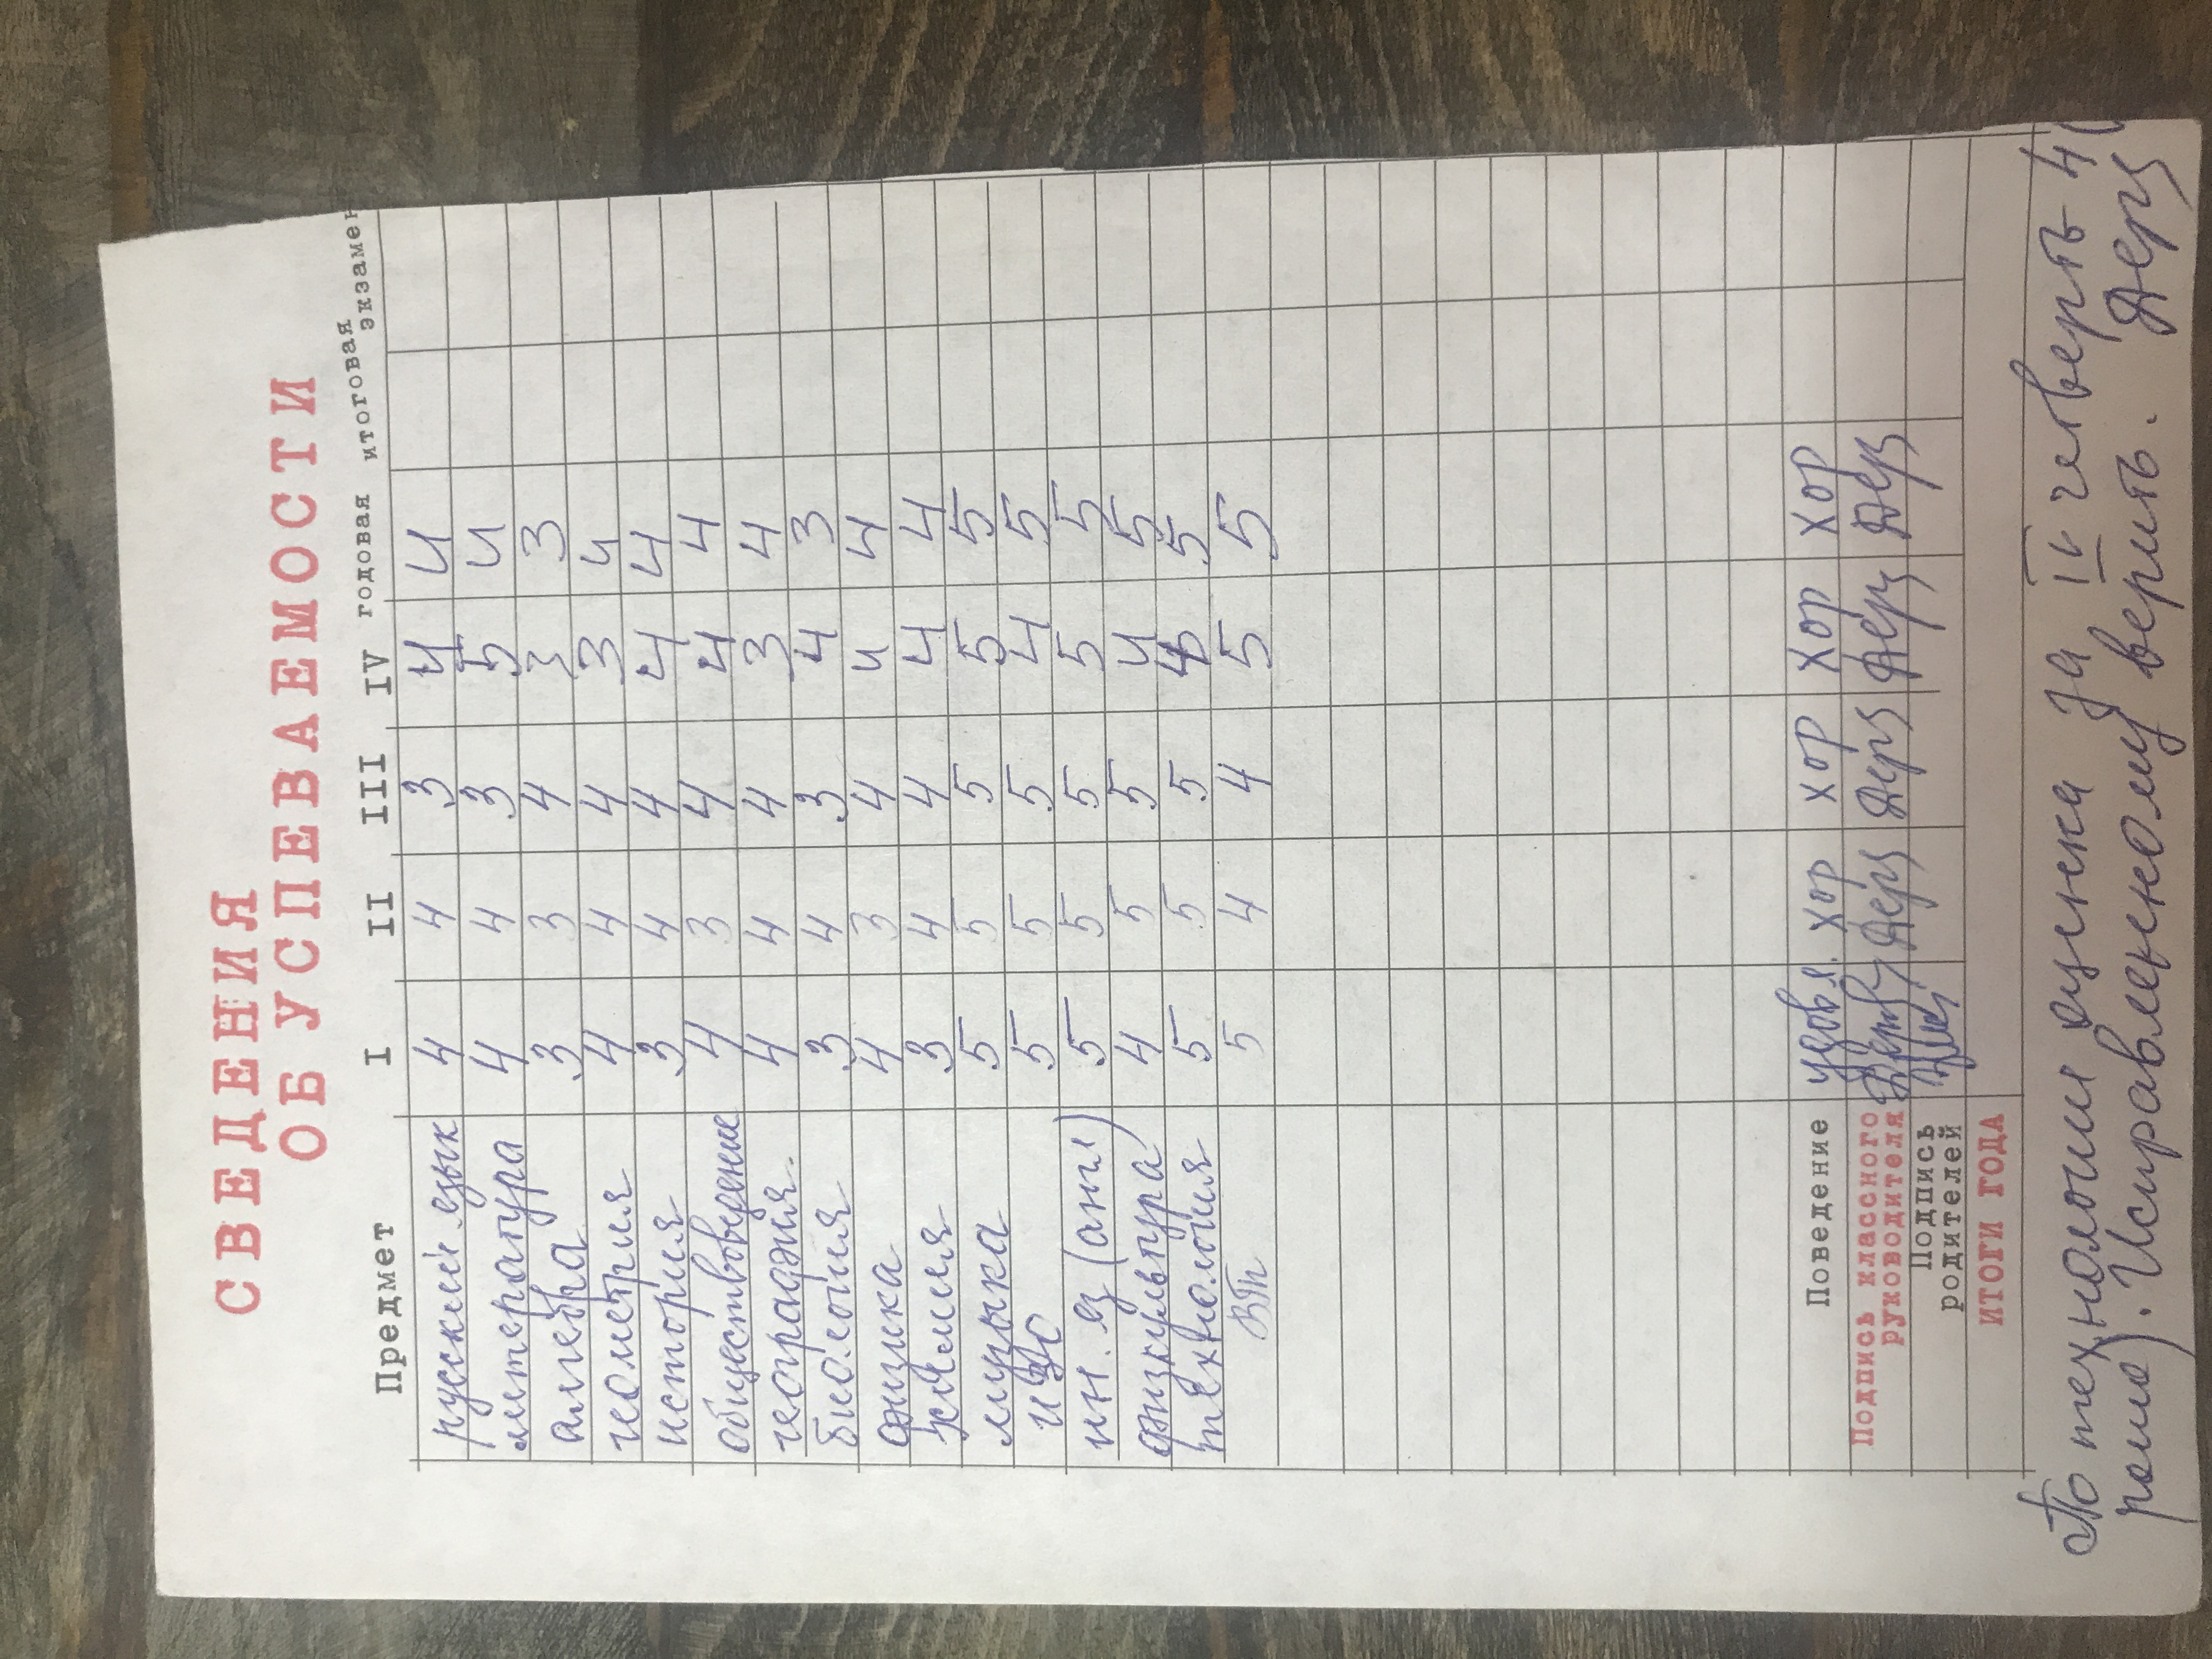 СВЕДЕНИЯ
ОБ УСПЕВАЕМОСТИ
Предмет I II III IV годовая итоговая экзамен
русский язык 4 4 3 4 4
литература 4 4 3 5 4
алгебра 3 3 4 3 3
геометрия 4 4 4 3 4
история 3 4 4 4 4
обществоведение 4 3 4 4 4
география. 4 4 4 3 4
биология 3 4 3 4 3
физика 4 3 4 4 4
химия 3 4 4 4 4
музыка 5 5 5 5 5
ИЗО 5 5 5 4 5
ин. яз (англ) 5 5 5 5 5
физкультура 4 5 5 4 5
технология 5 5 5 4 5
ВТ 5 4 4 5 5
Поведение удовл. хор хор хор хор
Подпись классного
руководителя Дерз Дерз Дерз Дерз
Подпись
родителей
ИТОГИ ГОДА
По технологии оценка за IV четверть 4(
рошо). Исправленному верить. Дерз